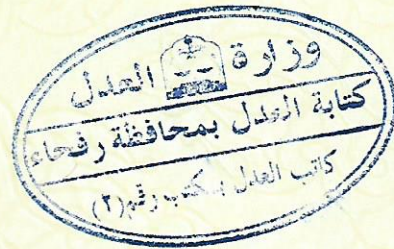 وزارة العدل
كتابة العدل بمحافظة رفحاء
كاتب العدل بمكتب رقم (٢)